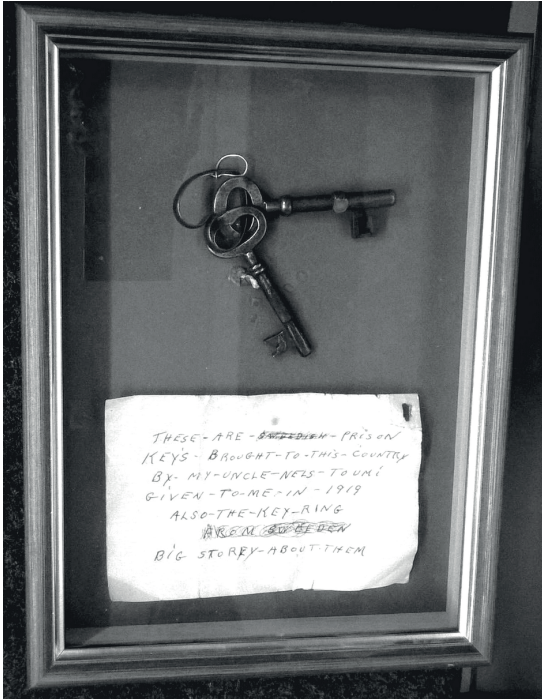 THESE-ARE-SWEEDISH-PRISON
KEYS-BROUGHT-TO-THIS-COUNTRY
BY-MY-UNCLE-NELS-TOUMI
GIVEN-TO-ME-IN-1919
ALSO-THE-KEY-RING
FROM SWEEDEN
BIG STOREY-ABOUT-THEM